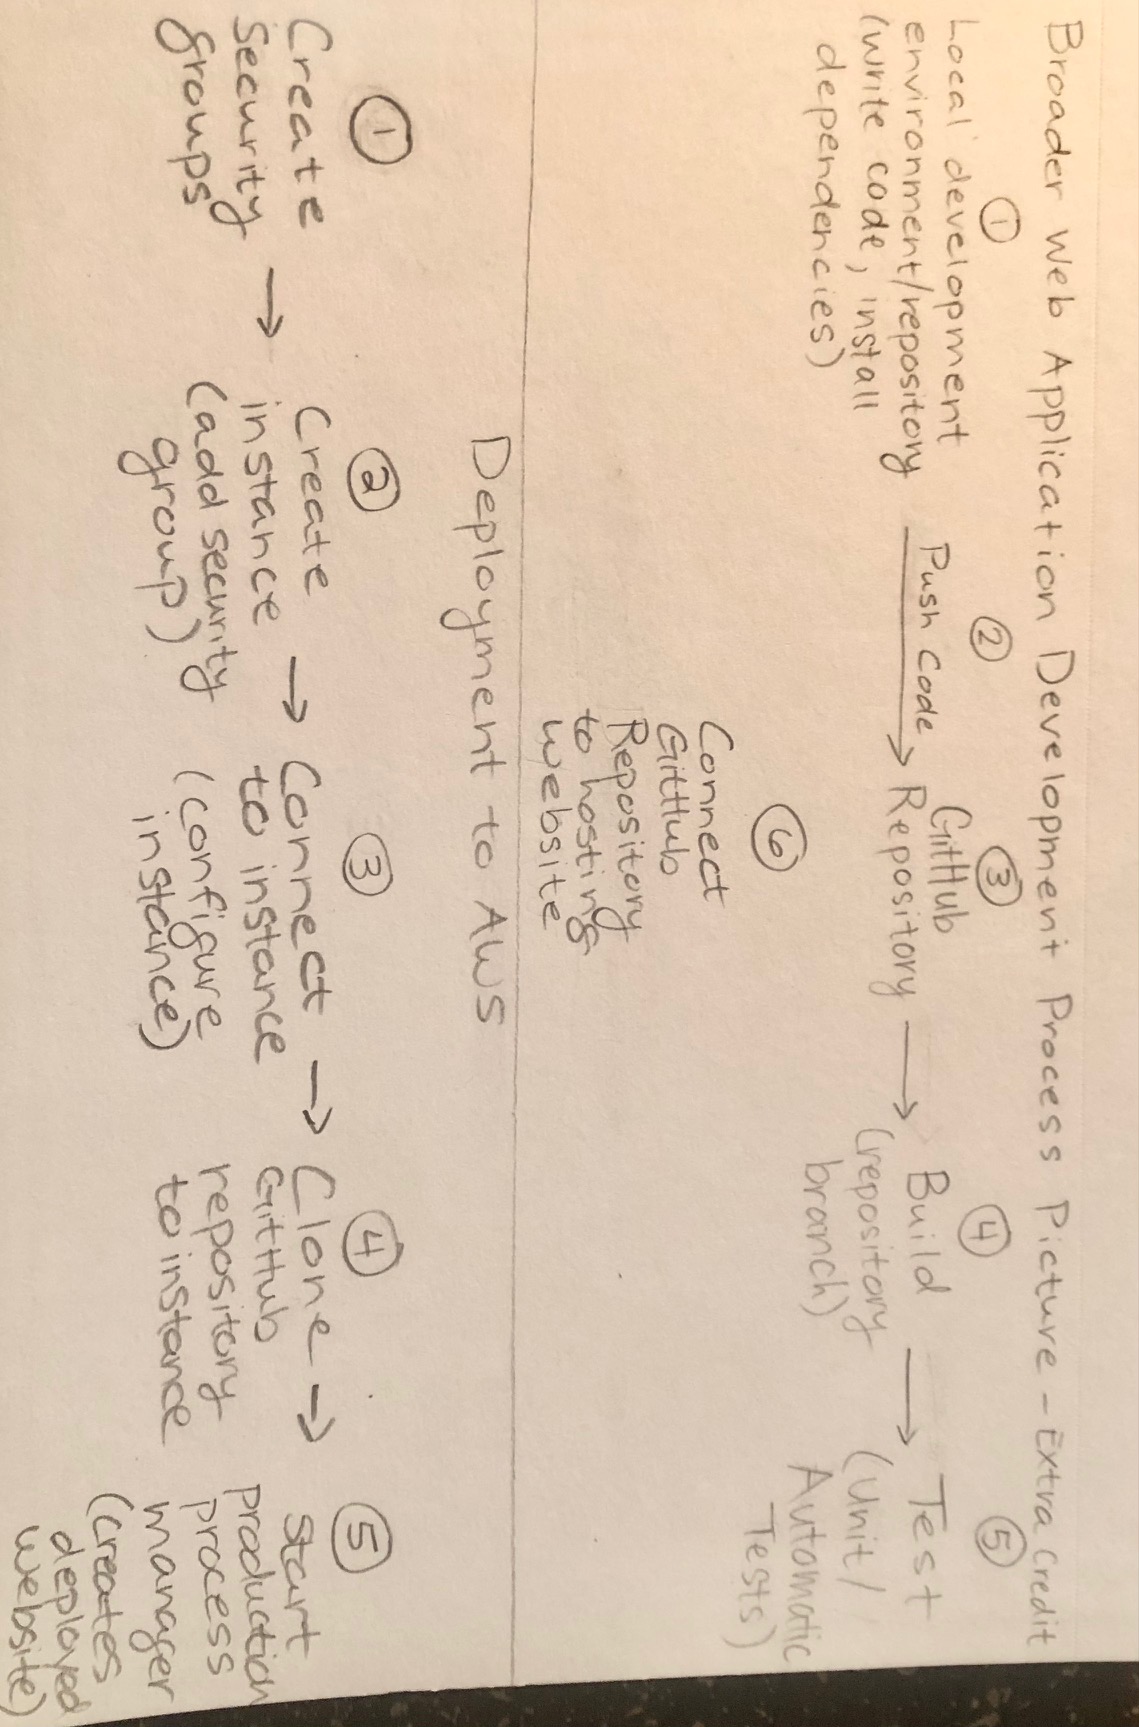 Broader Web Application Development Process Picture - Extra Credit
①
Local development
environment/repository
(write code, install
dependencies)
②
Push Code
③
GitHub
Repository
④
Build
(repository
branch)
⑤
Test
(Unit/
Automatic
Tests)
⑥
Connect
GitHub
Repository
to hosting
website
Deployment to AWS
①
Create
Security
groups
②
Create
instance
(add security
group)
③
Connect
to instance
(configure
instance)
④
Clone
GitHub
repository
to instance
⑤
Start
production
process
manager
(creates
deployed
website)